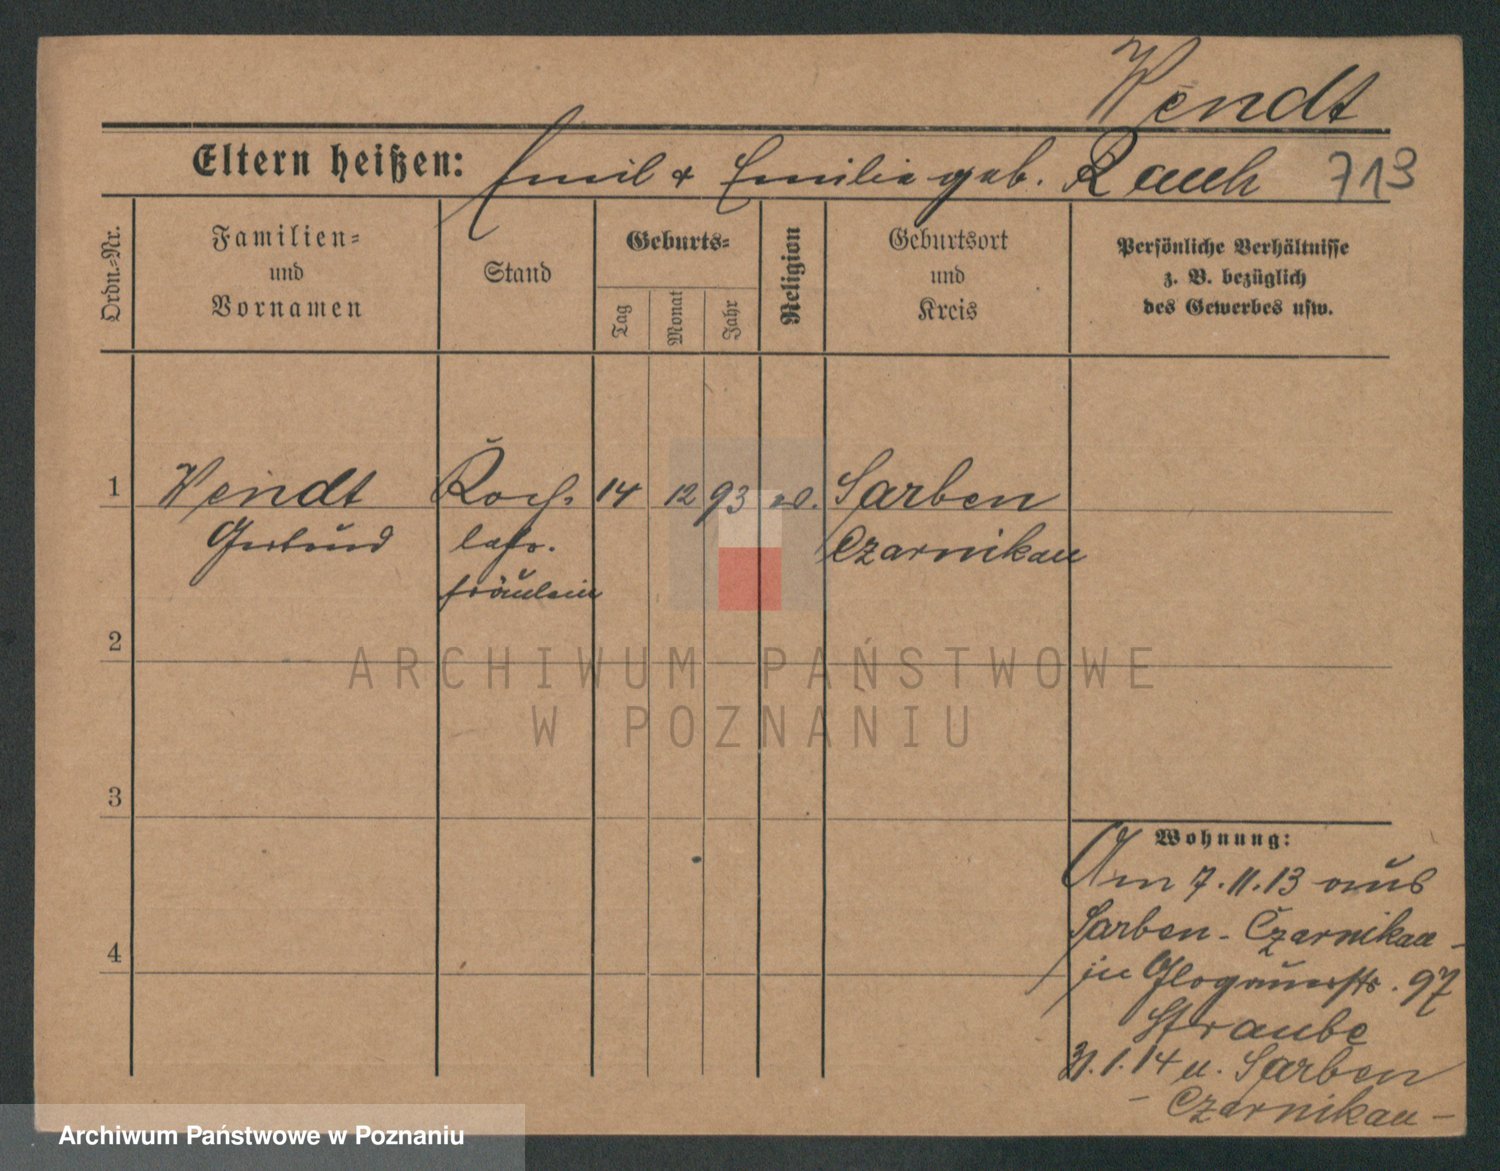 Wendt
Eltern heißen: Emil & Emilie geb. Rauh 713
Ordn.=Nr.
Familien=
und
Vornamen
Stand
Geburts=
Tag
Monat
Jahr
Religion
Geburtsort
und
Kreis
Persönliche Verhältnisse
z. B. bezüglich
des Gewerbes usw.
1 Wendt Koch= 14 12 93 ev. Sarben
Gertrud lehr. Czarnikau
fräulein
2
ARCHIWUM PAŃSTWOWE
W POZNANIU
3
Wohnung:
Am 7.11.13 aus
Sarben - Czarnikau -
in Glogauerstr. 97
Straube
31.1.14 n. Sarben
- Czarnikau -
4
Archiwum Państwowe w Poznaniu